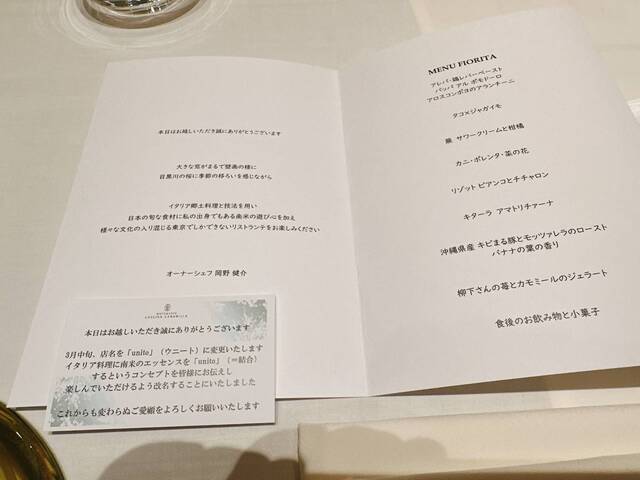 本日はお越しいただき誠にありがとうございます
大きな窓がまるで壁画の様に
目黒川の桜に季節の移ろいを感じながら
イタリア郷土料理と技法を用い
日本の旬な食材に私の出身でもある南米の遊び心を加え
様々な文化の入り混じる東京でしかできないリストランテをお楽しみください
オーナーシェフ 岡野 健介
本日はお越しいただき誠にありがとうございます
3月中旬、店名を「unito」(ウニート)に変更いたします
イタリア料理に南米のエッセンスを「unito」(=結合)
するというコンセプトを皆様にお伝えし
楽しんでいただけるよう改名することにいたしました
これからも変わらぬご愛顧をよろしくお願いいたします
MENU FIORITA
アレパ・鶏レバーペースト
パッパ アル ポモドーロ
アロスコンポヨのアランチーニ
タコ×ジャガイモ
サワークリームと柑橘
カニ・ポレンタ・菜の花
リゾット ビアンコとチチャロン
キターラ アマトリチャーナ
沖縄県産 キビまる豚とモッツァレラのロースト
バナナの葉の香り
柳下さんの苺とカモミールのジェラート
食後のお飲み物と小菓子